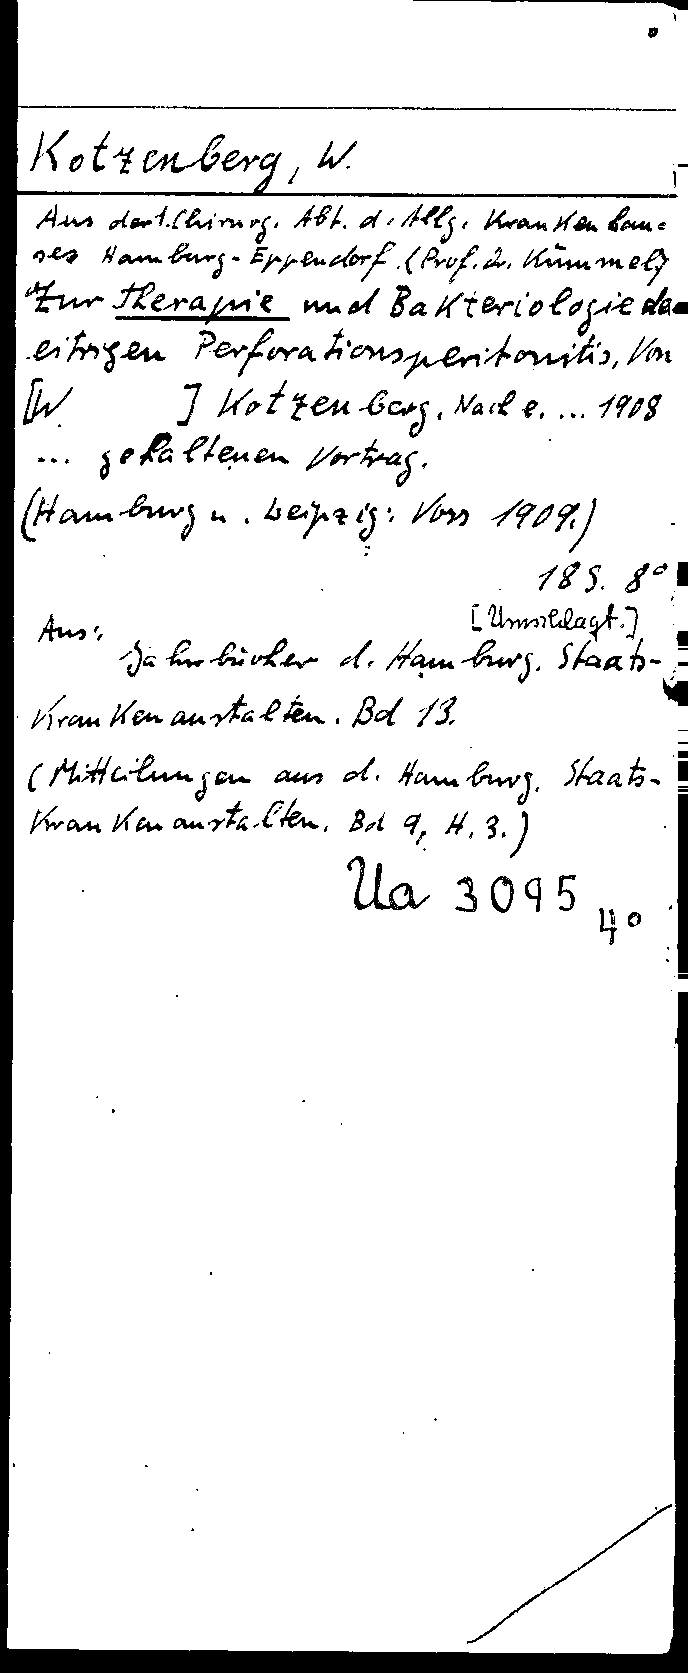 Kotzenberg, W.
Aus der I. Chirurg. Abt. d. Allg. Krankenhau=
ses Hamburg-Eppendorf (Prof. Dr. Kümmel)
Zur Therapie und Bakteriologie de
eitrigen Perforationsperitonitis, Von
[W ] Kotzenberg. Nach e. ... 1908
... gehaltenen Vortrag.
(Hamburg u. Leipzig: Voss 1909.)
18 S. 8°
[Umschlagt.]
Aus:
Jahrbücher d. Hamburg. Staats-
Krankenanstalten. Bd 13.
(Mitteilungen aus d. Hamburg. Staats-
Krankenanstalten. Bd 9, H. 3.)
Ua 3095
4°